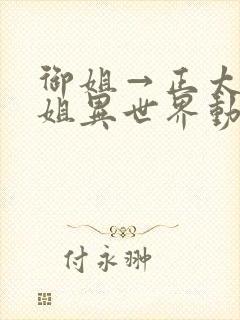 御姐→正太
姐異世界動
付永翀